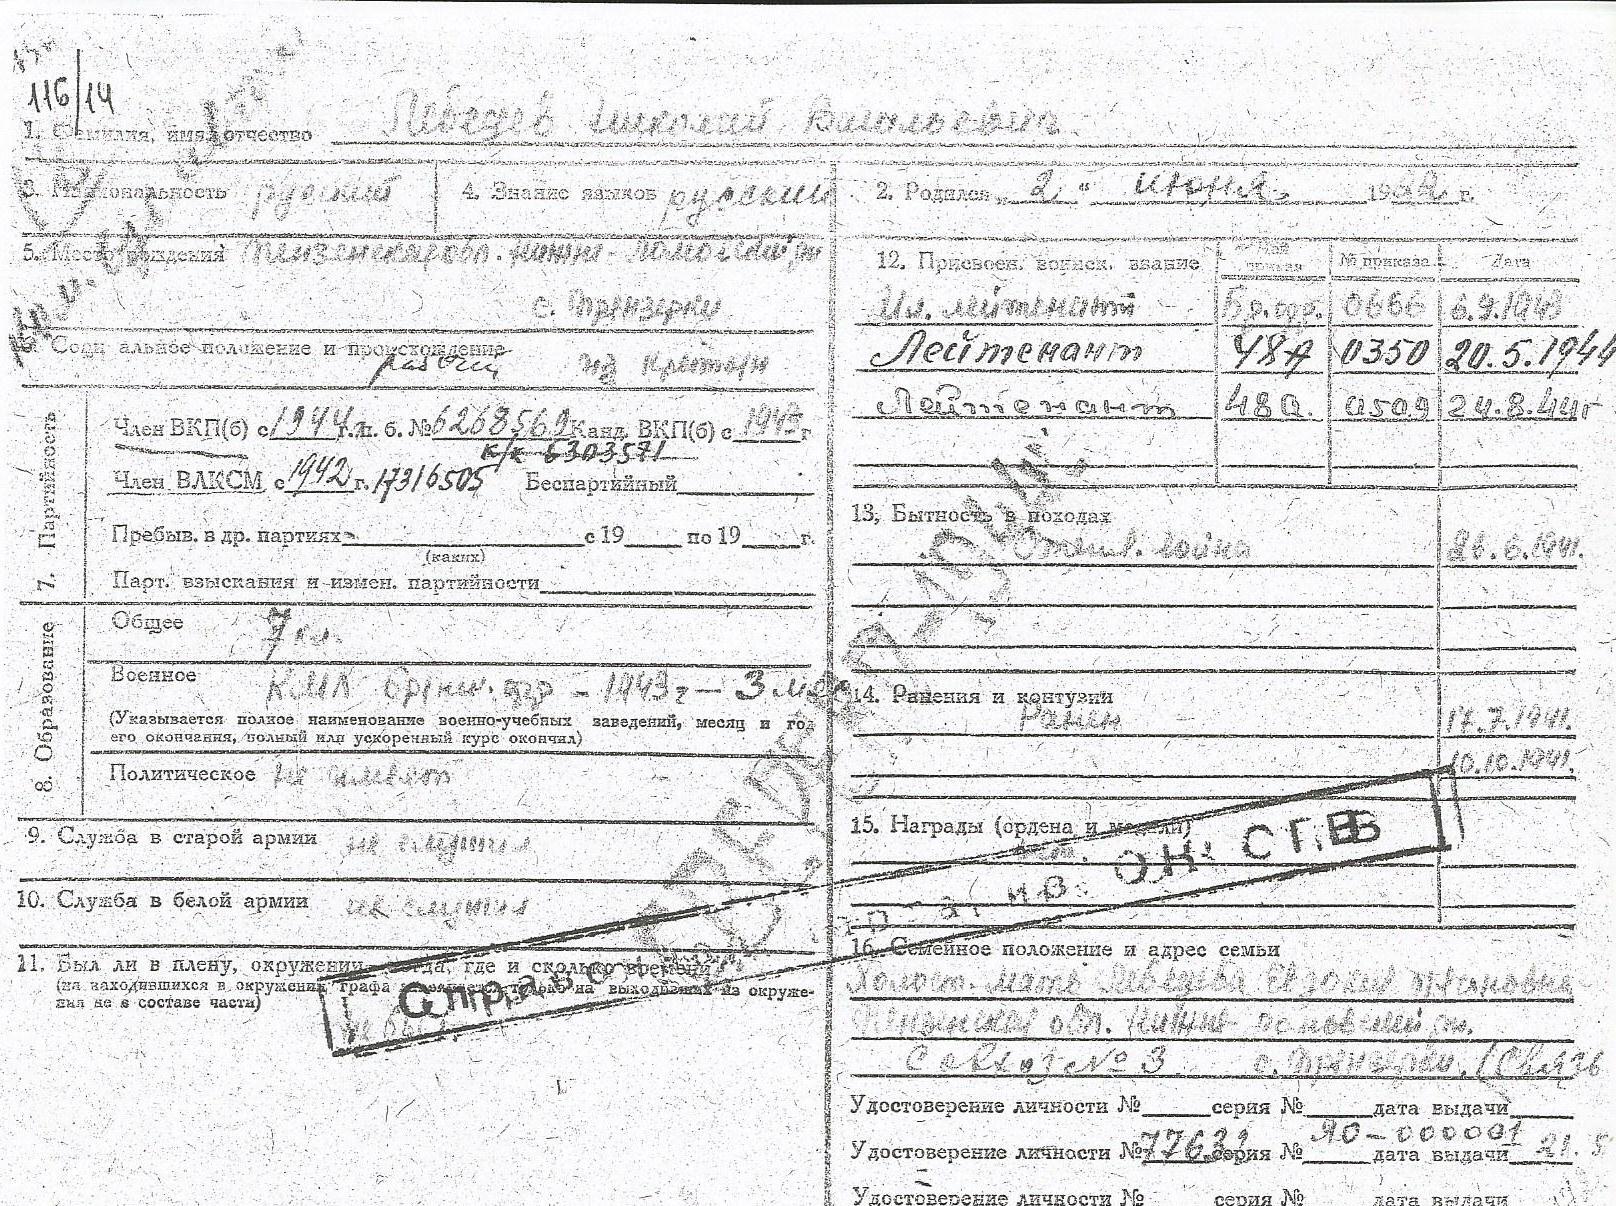 116/14
1. Фамилия, имя, отчество Лебедев Николай Васильевич
3. Национальность русский 4. Знание языков русский
2. Родился „2“ июня 1922 г.
5. Место рождения Пензенская обл. Нижне-Ломовский рн
с.
6. Социальное положение и происхождение рабочий из крестьян
12. Присвоен. воинск. звание № приказа Дата
Мл. лейтенант Бр.фр. 0666 6.9.1943
Лейтенант 48А 0350 20.5.1944
Лейтенант 48А. 0509 24.8.44г
7. Партийность
Член ВКП(б) с 1944 г. п. б. № 6268569 Канд. ВКП(б) с 1943 г
к/к 6303571
Член ВЛКСМ с 1942 г. 17316505 Беспартийный
Пребыв. в др. партиях с 19 по 19 г.
(каких)
Парт. взыскания и измен. партийности
13, Бытность в походах
Отеч. война 1941.
8. Образование
Общее 7 кл.
Военное КМЛ Брянс. фр – 1943 г – 3 мес
(Указывается полное наименование военно-учебных заведений, месяц и год
его окончания, полный или ускоренный курс окончил)
Политическое не имеет
14. Ранения и контузии
Ранен 17.7.1941.
10.10.1941.
9. Служба в старой армии не служил
10. Служба в белой армии не служил
11. Был ли в плену, окружении, когда, где и сколько времени
(на находившихся в окружении графа заполняется только на выходивших из окруже-
ния не в составе части)
не был.
15. Награды (ордена и медали)
нет.
16. Семейное положение и адрес семьи
Холост. мать Лебедева Евдокия
Пензенская обл. Нижне-Ломовский рн.
Совхоз № 3 с. (Связь
Удостоверение личности № серия № дата выдачи
Удостоверение личности № 77632 серия № ЯО-000001 дата выдачи 21.5
Удостоверение личности № серия № дата выдачи